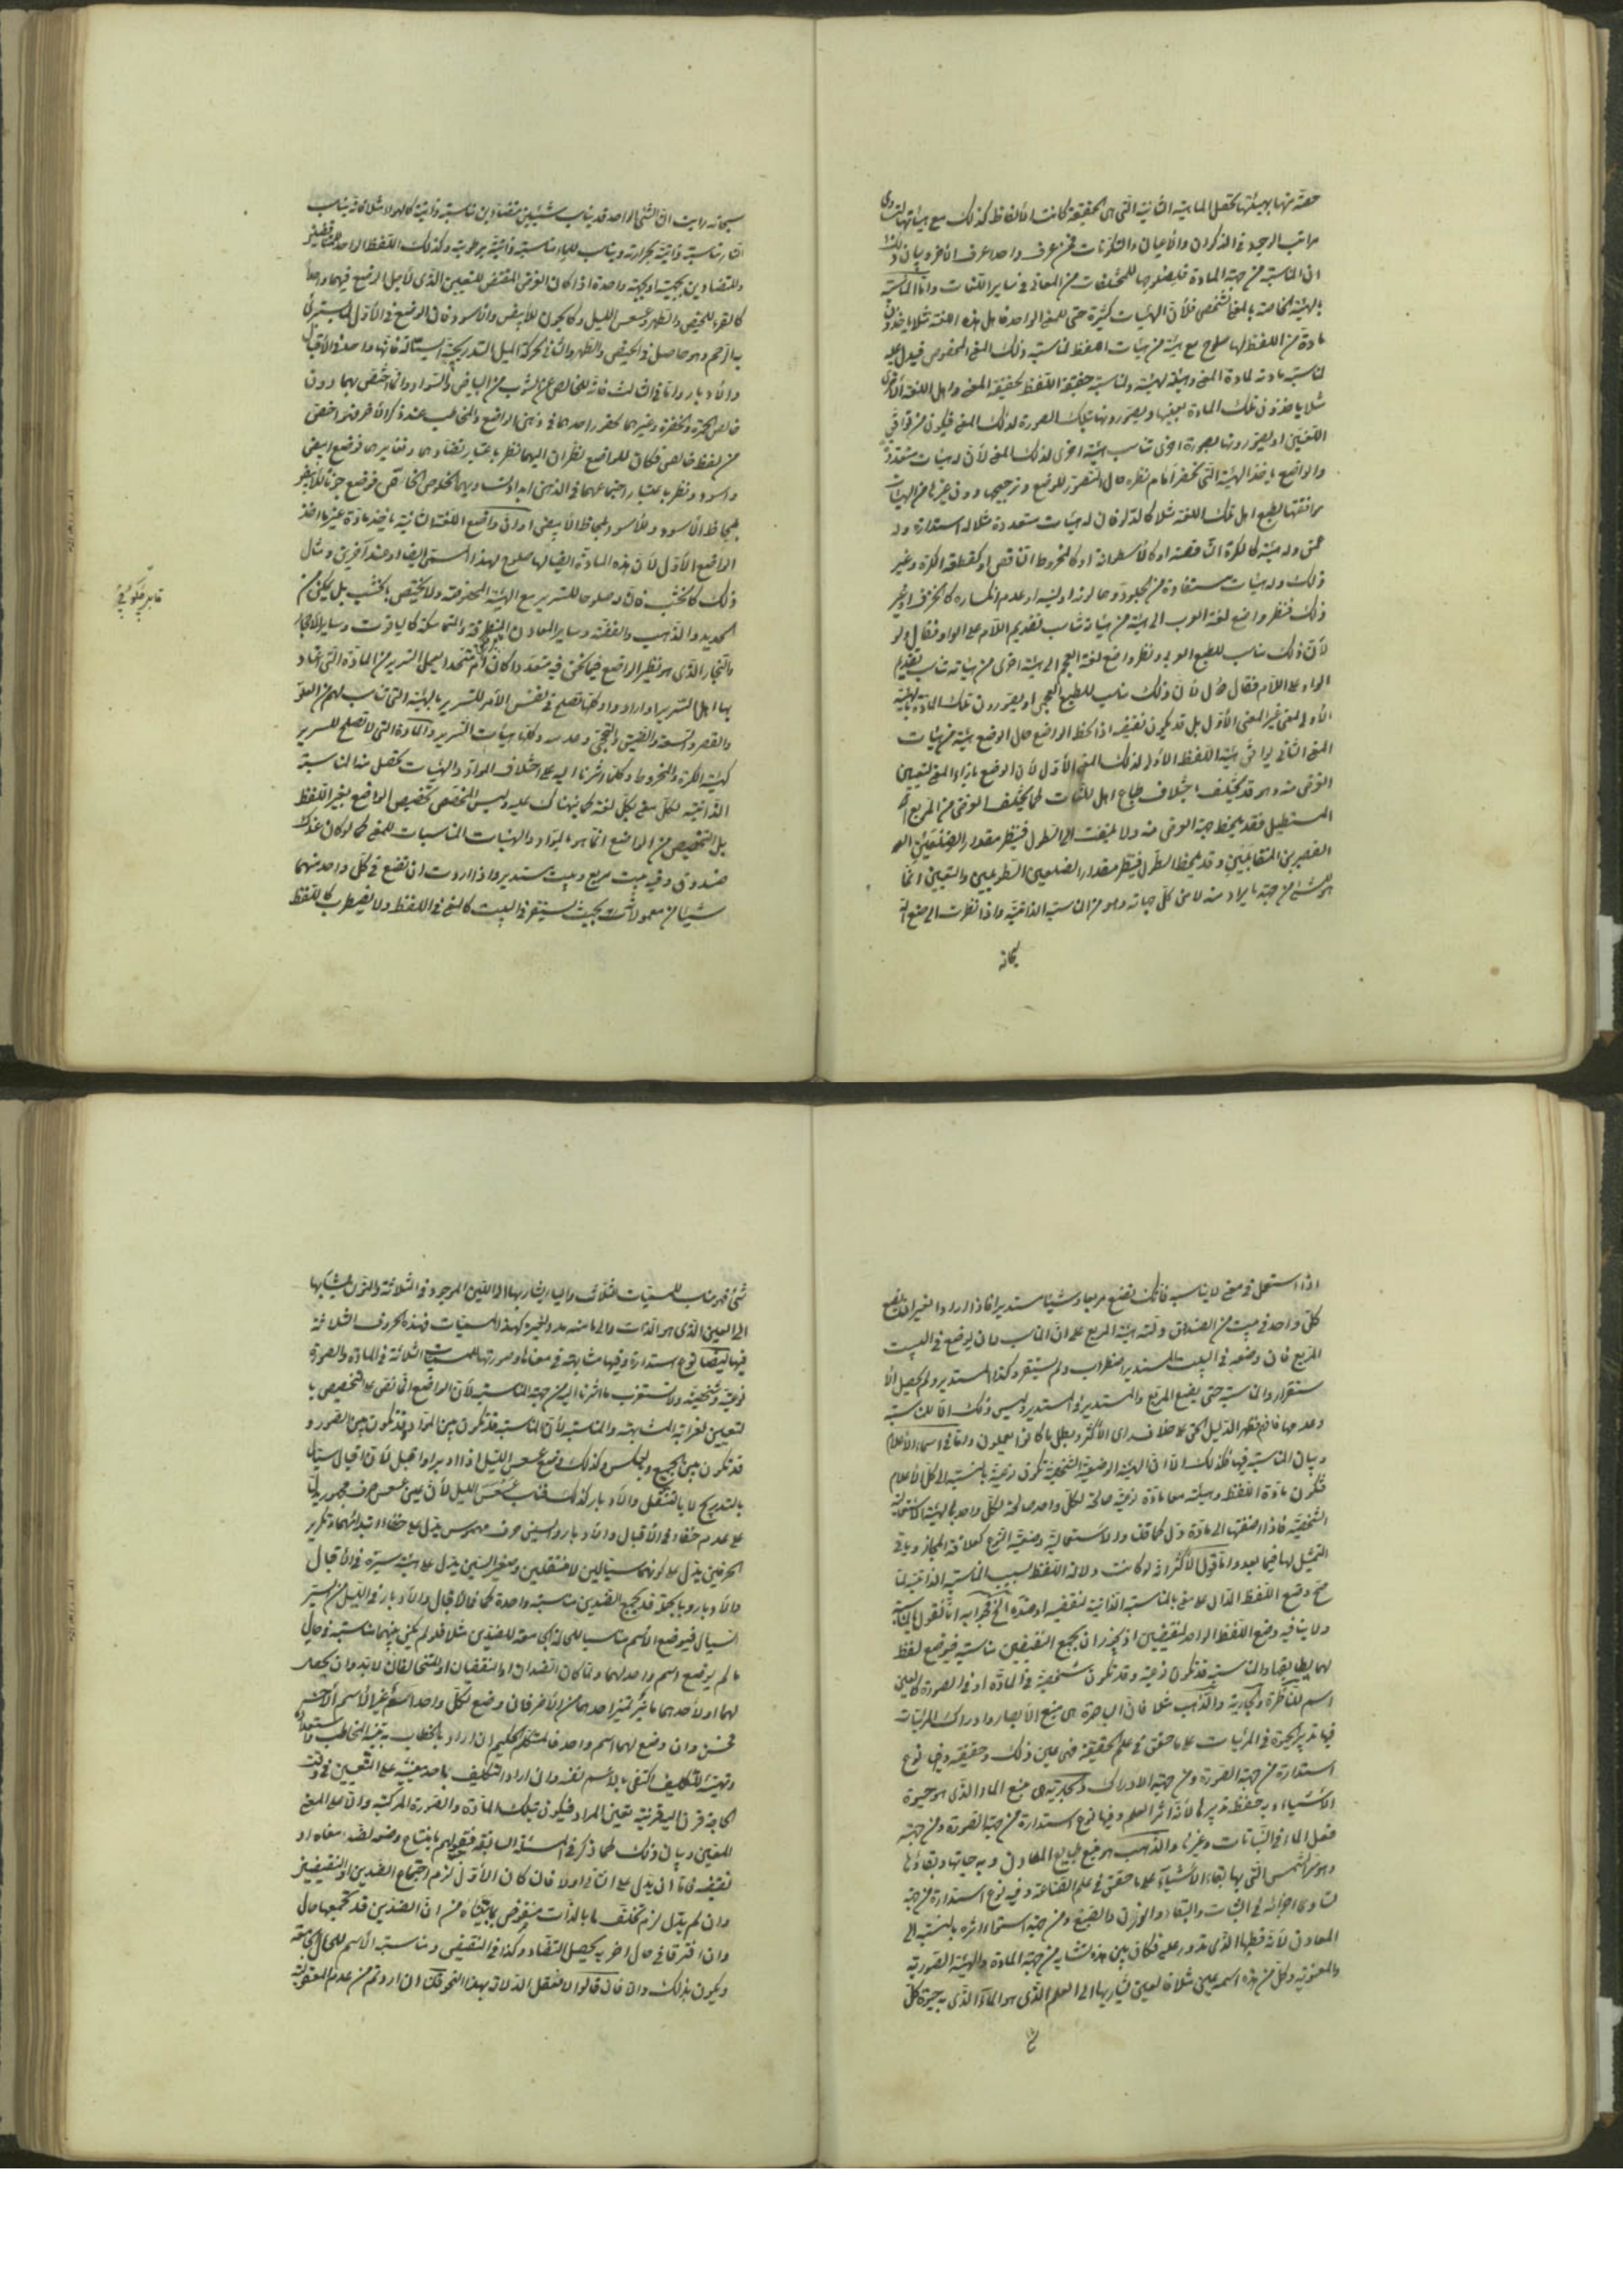 حقه منها بهيئتها تحصل الماهية الثانية التي هي الحقيقة كانت الألفاظ كذلك مع هيئاتها لتساوى
مراتب الوجود في الذكران والأعيان والتكوينات فمن عرف واحدا عرف الآخر وبيان ذلك
ان المناسبة من جهة المادة فلصلوحها للمختلفات من المعاني في ساير اللغات واما المناسبة
بالهيئة الخاصة بالمعنى الشخصي فلأن الهيئات كثيرة حتى للمعنى الواحد فاهل هذه اللغة مثلا يأخذون
مادة من اللفظ لها صلوح مع هيئة من هيئات اللفظ لمناسبة ذلك المعنى المخصوص فيدل عليه
لمناسبة مادته لمادة المعنى وهيئته لهيئته ولمناسبة حقيقة اللفظ لحقيقة المعنى واهل اللغة الأخرى
مثلا يأخذون تلك المادة بعينها ويصورونها بتلك الصورة لذلك المعنى فيكون من توافق
اللغتين او يصورونها بصورة اخرى تناسب هيئة اخرى لذلك المعنى لأن له هيئات متعددة
والواضع يأخذ الهيئة التي تحضر أمام نظره حال التصور للوضع وترجيحها دون غيرها من الهيئات
موافقتها لطبع اهل تلك اللغة مثلا كالدلو فان له هيئات متعددة مثلا له استدارة وله
عمق وله هيئة كالكرة الناقصة او كالأسطوانة او كالمخروط الناقص او كقطعة الكرة وغير
ذلك وله هيئات مستفادة من الجلود وحالوته او لينه او عدم انكساره كالخزف او غير
ذلك فنظر واضع لغة العرب الى هيئة من هيئاته تناسب تقديم اللام على الواو فقال دلو
لأن ذلك مناسب للطبع العربي ونظر واضع لغة العجم الى هيئة اخرى من هيئاته تناسب تقديم
الواو على اللام فقال دول لأن ذلك مناسب للطبع العجمي او يصورون تلك المادة بالهيئة
الأولى لمعنى غير المعنى الأول بل قد يكون نقيضه اذا لحظ الواضع حال الوضع هيئة من هيئات
المعنى الثاني يوافق هيئة اللفظ الأول لذلك المعنى الأول لأن الوضع بازاء المعنى لتعيين
الغرض منه وهو قد يختلف باختلاف طباع اهل اللغات كما يختلف الغرض من المربع
المستطيل فقد يلحظ جهة العرض منه ولا يلتفت الى الطول فينظر مقدار الضلعين
القصيرين المتقابلين وقد يلحظ الطول فينظر مقدار الضلعين الطويلين والتعيين انما
هو للشئ من جهة ما يراد منه لا من كل جهاته وهو من المناسبة الذاتية واذا نظرت الى صنع الله
سبحانه
سبحانه رأيت ان الشئ الواحد قد يناسب شيئين متضادين مناسبة ذاتية كالهواء مثلا فانه يناسب
النار مناسبة ذاتية بحرارته ويناسب الماء مناسبة ذاتية برطوبته وكذلك اللفظ الواحد
وللمتضادين بجهتين او بجهة واحدة اذا كان الغرض المقتضى للتعيين الذي لأجله الوضع فيهما واحدا
كالقرء للحيض والطهر وعسعس الليل وكالجون للأبيض والأسود فان الوضع في الأول
به الرحم وهو حاصل في الحيض والطهر والثاني لحركة الليل التدريجية السيالة فانها واحدة في الاقبال
والأدبار واما في الثالث فانه للخالص عن الشوب من البياض والسواد وانما اختص بهما دون
خالص الحمرة والخضرة وغيرهما لحضور احدهما في ذهن الواضع والمخاطب عند ذكر الآخر فهو اخص
من لفظ خالص فكان للواضع نظران اليهما نظر باعتبار تضادهما وتغايرهما فوضع ابيض
واسود ونظر باعتبار اجتماعهما في الذهن
بلحاظ الأسود وللأسود بلحاظ الأبيض او لأن واضع اللغة الثانية يأخذ مادة غير ما اخذ
الواضع الأول لأن هذه المادة ايضا لها صلوح لهذا المسمى ايضا او عند آخرين ومثال
ذلك كالخشب فان له صلوحا للسرير مع الهيئة المخصوصة ولا يختص بالخشب بل يمكن من
الحديد والذهب والفضة وساير المعادن المنطرقة والمتماسكة كالياقوت وساير الأحجار
والنجار الذي هو نظير الواضع فيما نحن فيه متعددا كان أم متحدا يعمل السرير من المادة التي اعتاد
بها اهل السرير او اراد وا وكلها تصلح في نفس الأمر للسرير بالهيئة التي تناسب لهم من العلو
والقصر والسعة والضيق وكلها هيئات السرير والمادة التي لا تصلح للسرير
كهيئة الكرة والمخروط وكلما اشرنا اليه على اختلاف المواد والهيئات تحصل منه المناسبة
الذاتية لكل معنى بكل لغة كما نبهناك عليه وليس المخصص تخصيص الواضع بغير اللفظ
بل التخصيص من الواضع انما هو بالمواد والهيئات المناسبات للمعنى كما لو كان عندك
صندوق وفيه بيت مربع وبيت مستدير واذا اردت ان تضع في كل واحد منهما
شيئا من معمولاته بحيث يستقر في البيت كالمعنى في اللفظ ولا يضطرب كاللفظ
اذا استعمل في معنى لا يناسبه فانك تصنع مربعا وشيئا مستديرا فاذا اراد الغير ان يضع
كل واحد في بيت من الصندوق دلته هيئة المربع على ان المناسب له ان يوضع في البيت
المربع فان وضعه في البيت المستدير اضطرب ولم يستقر وكذا المستدير ولم يحصل الأ
ستقرار والمناسبة حتى يضع المربع في المربع والمستدير في المستدير وليس ذلك الا للمناسبة
وعدمها فافهم فظهر الدليل الحق على خلاف رأى الأكثر وبطل ما كانوا يعملون واما في اسماء الأعلام
وبيان المناسبة فيها فكذلك الا ان الهيئة الوضعية الشخصية تكون نوعية بالنسبة الى كل الأعلام
فتكون مادة اللفظ وهيئته معا مادة نوعية صالحة لكل واحد صالحة لكل واحد بالهيئة الاستعمالية
الشخصية فاذا اضفتها الى مادة دل
التمثيل لها فيما بعد واما قول الأكثر انه لو كانت دلالة اللفظ بسبب المناسبة الذاتية لما
صح وضع اللفظ الدال على معنى بالمناسبة الذاتية لنقيضه او ضده الخ فجوابه انا نقول بالمناسبة
ولا ينافيه وضع اللفظ الواحد لنقيضين اذ يجوز ان يجمع النقيضين مناسبة فيوضع لفظ
لهما يطابقها والمناسبة قد تكون نوعية وقد تكون شخصية في المادة او في الصورة كالعين
اسم للناظرة والجارية والذهب مثلا فان الباصرة هي منبع الأبصار وادراك المرئيات
فيها تدبير الحيوة في المرئيات على ما حقق في علم الحقيقة فهي عين ذلك وحقيقته وفيها نوع
استدارة من جهة الصورة ومن جهة الادراك والجارية هي منبع الماء الذي هو حيوة
الأشياء وبه حفظ تدبيرها لأنه اثر العلم وفيها نوع استدارة من جهة الصورة ومن جهة
فعل الماء في النباتات وغيرها والذهب هو منبع طبايع المعادن وبه حياتها وبقاؤها
وهو سر الشمس التي بها بقاء الأشياء على ما حقق في علم الصناعة وفيه نوع استدارة من جهة
تساوى اجزائه في الثبات والبقاء والوزن والصبغ ومن جهة استمداد اثره بالنسبة الى
المعادن لأنه قطبها الذي تدور عليه فكان بين هذه تشابه من جهة المادة والهيئة الصورية
والمعنوية وكل من هذه اسمه عين مثلا فالعين يشار بها الى العلم الذي هو الماء الذي به حيوة كل
شئ فهو مناسب للمسميات الثلاث والياء يشار بها الى اللين الموجود في الثلاثة والنون لمشابهتها
الى العين الذي هو الذات والى ما منه مدد لغيره كهذه المسميات فهذه الحروف الثلاثة
فيها ايضا نوع استدارة وفيها مشابهة في معناها وصورتها للمسميات الثلاثة في المادة والصورة
نوعية وشخصية ولا تستغرب ما اشرنا اليه من جهة المناسبة لأن الواضع انما نص على التخصيص با
لتعيين لغرابة المشابهة والمناسبة لأن المناسبة قد تكون بين المواد وقد تكون بين الصور و
قد تكون بين الجميع وبالعكس وكذلك وضع عسعس الليل اذا ادبر او اقبل لأن اقباله سيال
بالتدريج لا بالتنقل والأدبار كذلك فناسب عسعس الليل لأن عين عسعس حرف مجهور يدل
على عدم خفاء في الأقبال والأدبار والسين حرف مهموس يدل على خفاء ابتدائهما وتكرير
الحرفين يدل على كونهما سيالين لا منتقلين وصفير السين يدل على هيئة سيره في الأقبال
والأدبار وبالجملة قد يجمع الضدين مناسبة واحدة كما في الأقبال والأدبار في الليل من السير
السيال فيوضع الأسم مناسبا للحالة الجامعة للضدين مثلا فلو لم يكن بينهما مناسبة في حال
ما لم يوضع اسم واحد لهما ولما كان الضدان او النقيضان او المتخالفان لابد وان يجعل
لهما او لأحدهما ما يميز احدهما من الآخر فان وضع لكل واحد اسم غير الأسم الآخر
فحسن وان وضع لهما اسم واحد فالمتكلم الحكيم ان اراد بالخطاب تهيئة المخاطب
وتهيئته للتكليف اكتفى بالأسم نفسه وان اراد التكليف باحد معنييه على التعيين في وقت
الحاجة قرن اليه قرينة تعين المراد فيكون تلك المادة والصورة المركبة دالة على المعنى
المعين وبيان ذلك كما ذكر في المسئلة السابقة فقولهم بامتناع وضعه لضد معناه او
نقيضه فاما ان يدل على الثاني اولا فان كان الأول لزم اجتماع الضدين او النقيضين
وان لم يدل لزم تخلف ما بالذات منقوض بما بيناه من ان الضدين قد تجمعهما حال
وان افترقا في حال آخر به يحصل التضاد وكذا في النقيض ومناسبة الأسم للحال الجامعة
ويكون بذلك دالا فان قالوا لا نعقل الدلالة بهذا النحو قلنا ان اردتم من عدم المعقولية